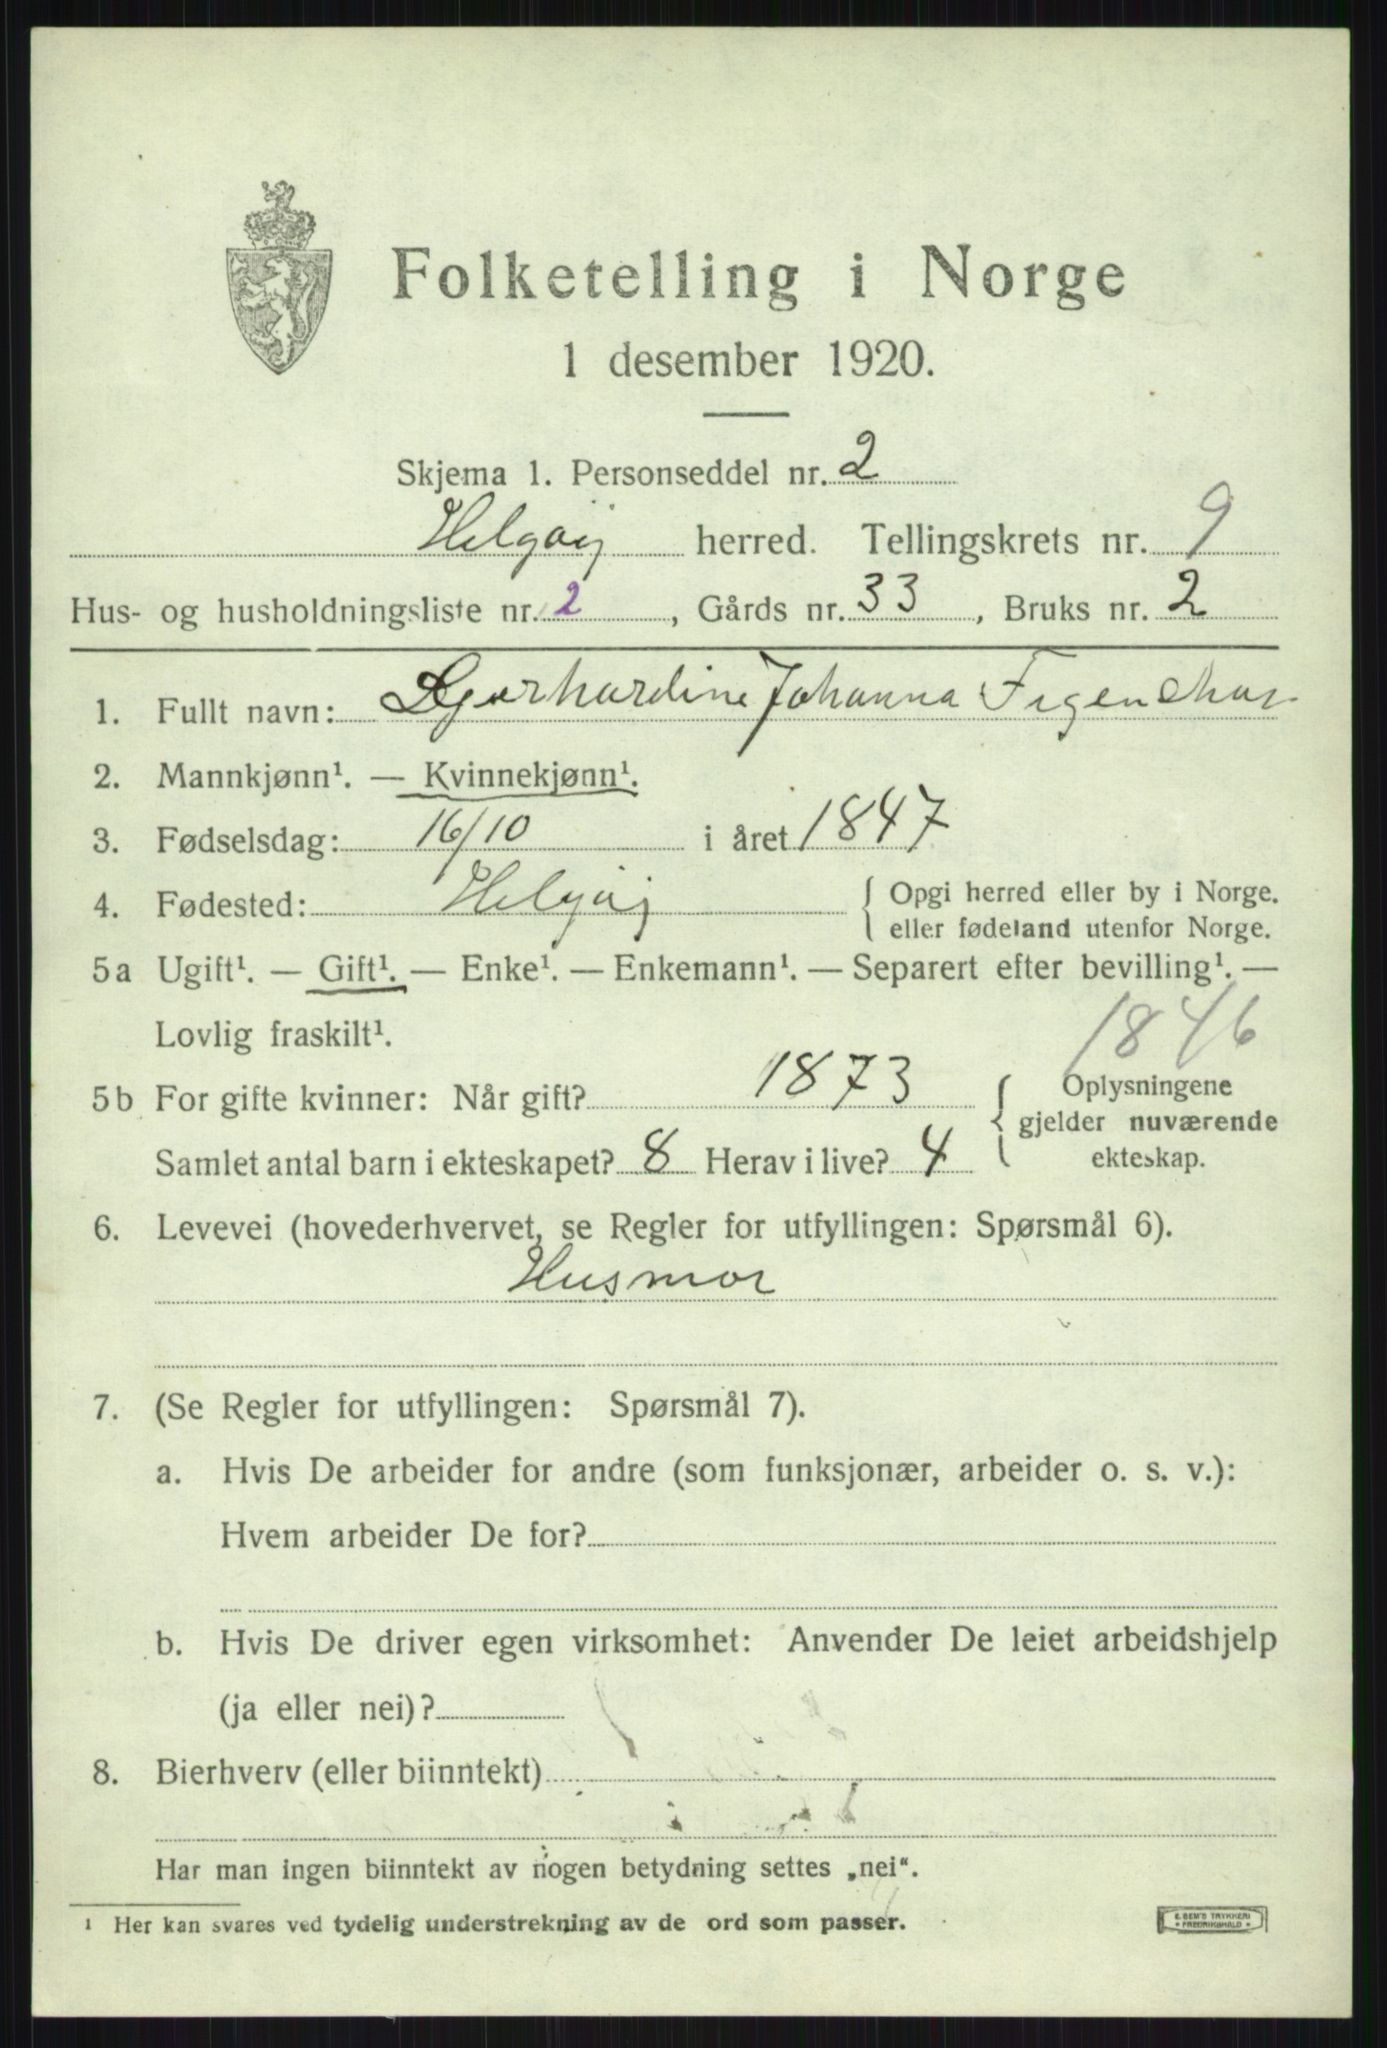 Folketelling i Norge
1 desember 1920.
Skjema 1. Personseddel nr. 2
Helgøij herred. Tellingskrets nr. 9
Hus- og husholdningsliste nr. 2, Gårds nr. 33, Bruks nr. 2
1. Fullt navn: Gjerhardine Johanna Figenschau
2. Mannkjønn¹. — Kvinnekjønn¹.
3. Fødselsdag: 16/10 i året 1847
4. Fødested: Helgøij { Opgi herred eller by i Norge.
eller fødeland utenfor Norge.
5a Ugift¹. — Gift¹. — Enke¹. — Enkemann¹. — Separert efter bevilling¹. —
Lovlig fraskilt¹.
1846
5b For gifte kvinner: Når gift? 1873 { Oplysningene
gjelder nuværende
Samlet antal barn i ekteskapet? 8 Herav i live? 4 ekteskap.
6. Levevei (hovederhvervet, se Regler for utfyllingen: Spørsmål 6).
Husmor
7. (Se Regler for utfyllingen: Spørsmål 7).
a. Hvis De arbeider for andre (som funksjonær, arbeider o. s. v.):
Hvem arbeider De for?
b. Hvis De driver egen virksomhet: Anvender De leiet arbeidshjelp
(ja eller nei)?
8. Bierhverv (eller biinntekt)
Har man ingen biinntekt av nogen betydning settes „nei“.
¹ Her kan svares ved tydelig understrekning av de ord som passer.
E. SEM'S TRYKKERI
• FREDRIKSHALD •